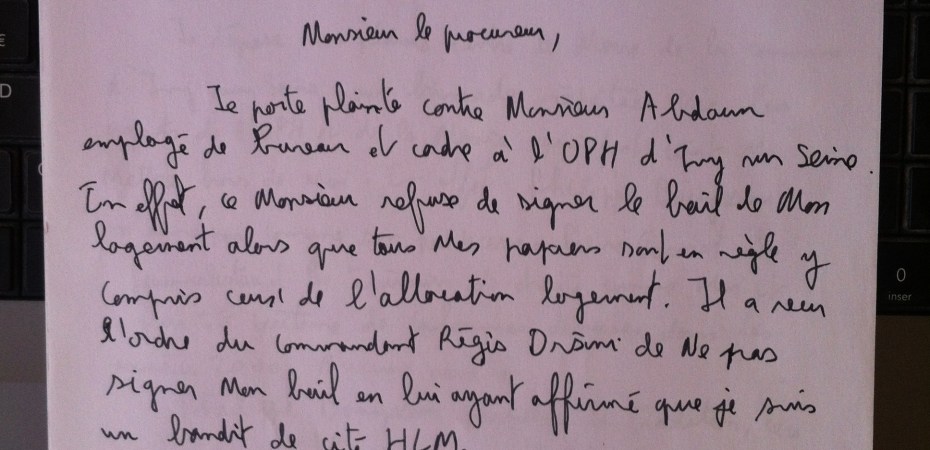 Monsieur le procureur,
Je porte plainte contre Monsieur Abdaum
employé de Bureau et cadre à l'OPH d'Ivry sur Seine.
En effet, ce Monsieur refuse de signer le bail de Mon
logement alors que tous Mes papiers sont en règle y
compris ceux de l'allocation logement. Il a reçu
l'ordre du commandant Régis de Ne pas
signer Mon bail en lui ayant affirmé que je suis
un bandit de cité HLM.
€
D
0
inser